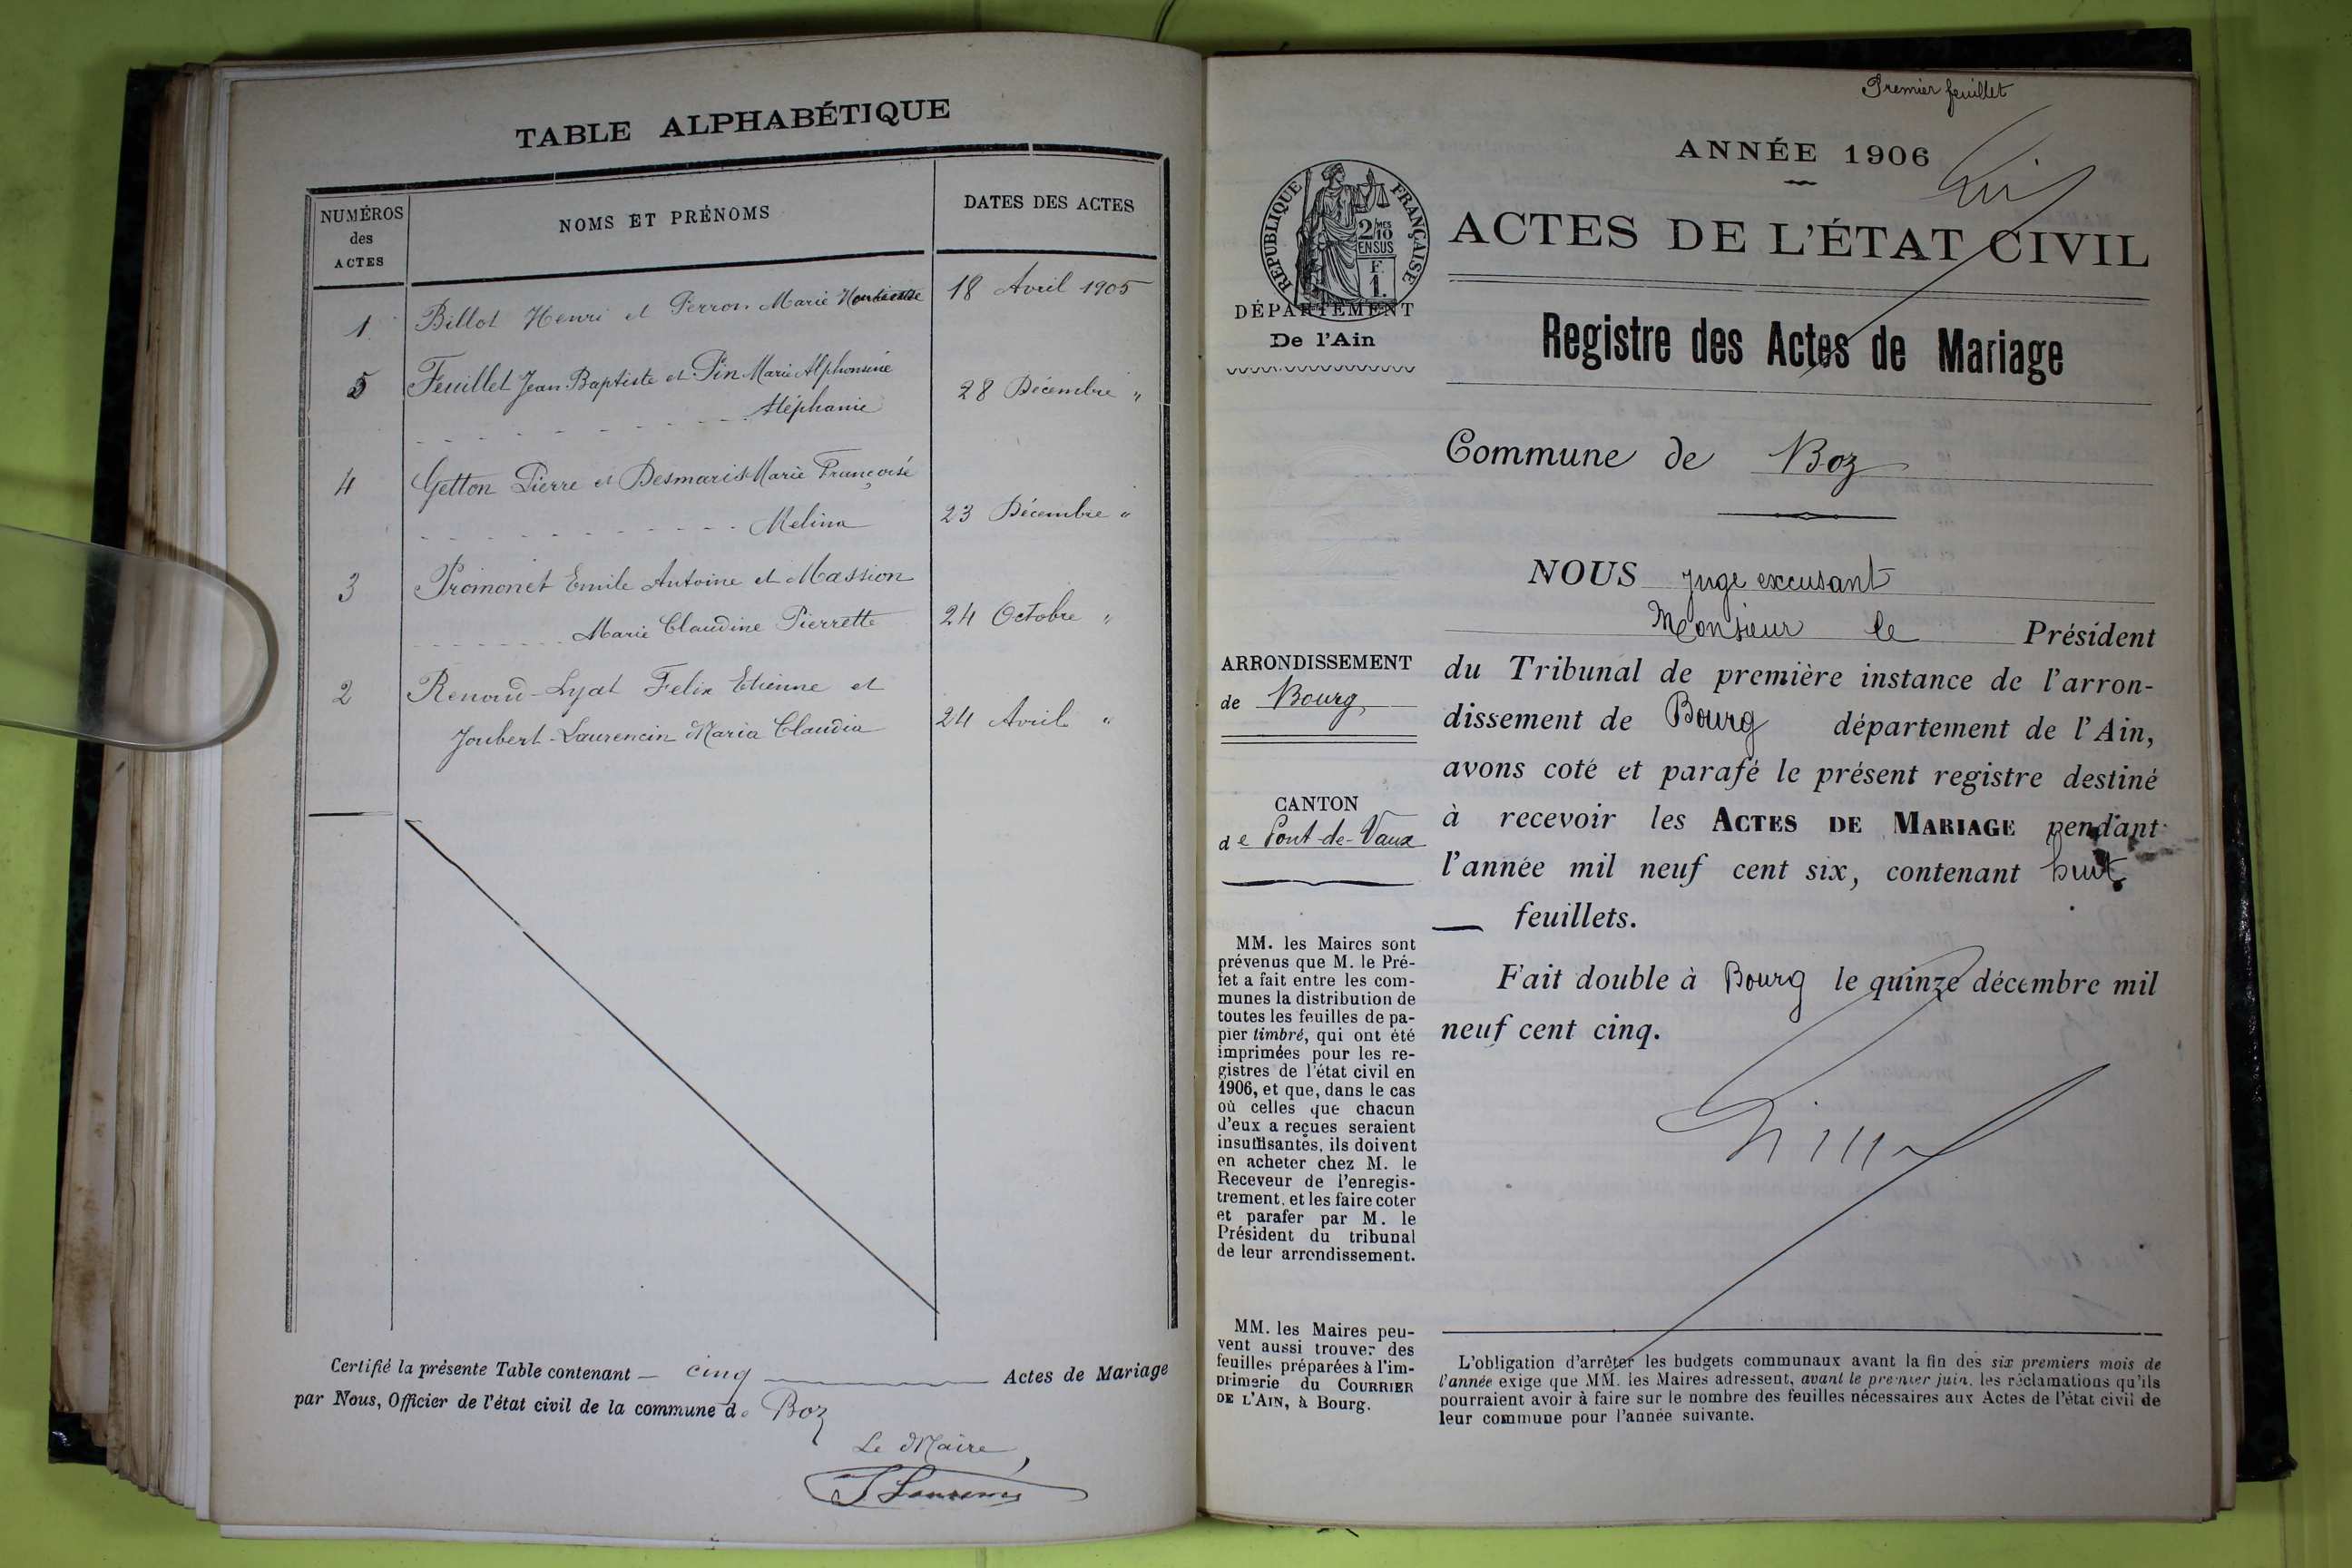 TABLE ALPHABÉTIQUE
NUMÉROS
des
ACTES
NOMS ET PRÉNOMS
DATES DES ACTES
1 Billot Henri et Perron Marie 18 Avril 1905
5 Feuillet Jean Baptiste et Pin Marie Alphonsine
Stéphanie 28 Décembre "
4 Getton Pierre et Desmaris Marie Françoise
Melina 23 Décembre "
3 Promonet Emile Antoine et Massion
Marie Claudine Pierrette 24 Octobre "
2 Renoud-Lyat Felix Etienne et
Joubert-Laurencin Maria Claudia 24 Avril "
Certifié la présente Table contenant cinq Actes de Mariage
par Nous, Officier de l'état civil de la commune de Boz
Le Maire,
Premier feuillet
ANNÉE 1906
RÉPUBLIQUE FRANÇAISE
2/10 MES
EN SUS
F.
1.
ACTES DE L'ÉTAT CIVIL
DÉPARTEMENT
De l'Ain
Registre des Actes de Mariage
Commune de Boz
NOUS juge excusant
Monsieur le Président
du Tribunal de première instance de l'arron-
dissement de Bourg département de l'Ain,
avons coté et parafé le présent registre destiné
à recevoir les ACTES DE MARIAGE pendant
l'année mil neuf cent six, contenant huit
feuillets.
Fait double à Bourg le quinze décembre mil
neuf cent cinq.
ARRONDISSEMENT
de Bourg
CANTON
de Pont-de-Vaux
MM. les Maires sont
prévenus que M. le Pré-
fet a fait entre les com-
munes la distribution de
toutes les feuilles de pa-
pier timbré, qui ont été
imprimées pour les re-
gistres de l'état civil en
1906, et que, dans le cas
où celles que chacun
d'eux a reçues seraient
insuffisantes, ils doivent
en acheter chez M. le
Receveur de l'enregis-
trement, et les faire coter
et parafer par M. le
Président du tribunal
de leur arrondissement.
MM. les Maires peu-
vent aussi trouver des
feuilles préparées à l'im-
primerie du COURRIER
DE L'AIN, à Bourg.
L'obligation d'arrêter les budgets communaux avant la fin des six premiers mois de
l'année exige que MM. les Maires adressent, avant le premier juin, les réclamations qu'ils
pourraient avoir à faire sur le nombre des feuilles nécessaires aux Actes de l'état civil de
leur commune pour l'année suivante.